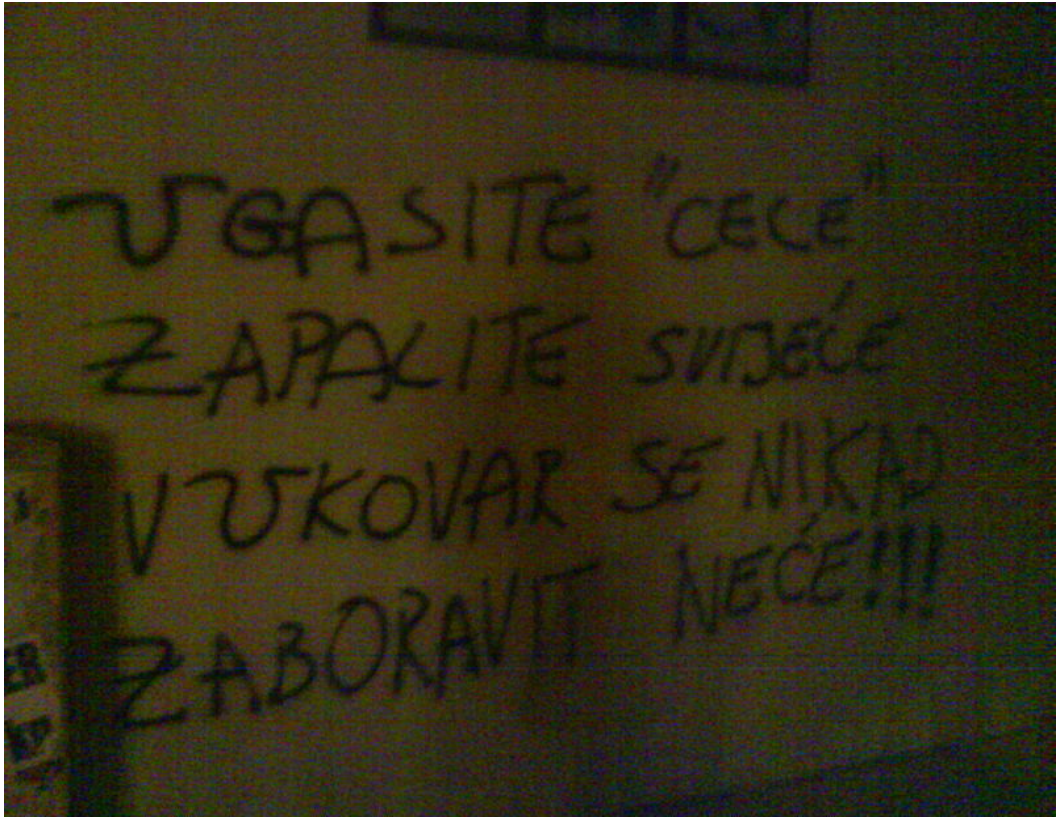 UGASITE "CECE"
ZAPALITE SVIJEĆE
VUKOVAR SE NIKAD
ZABORAVIT NEĆE!!!
ER